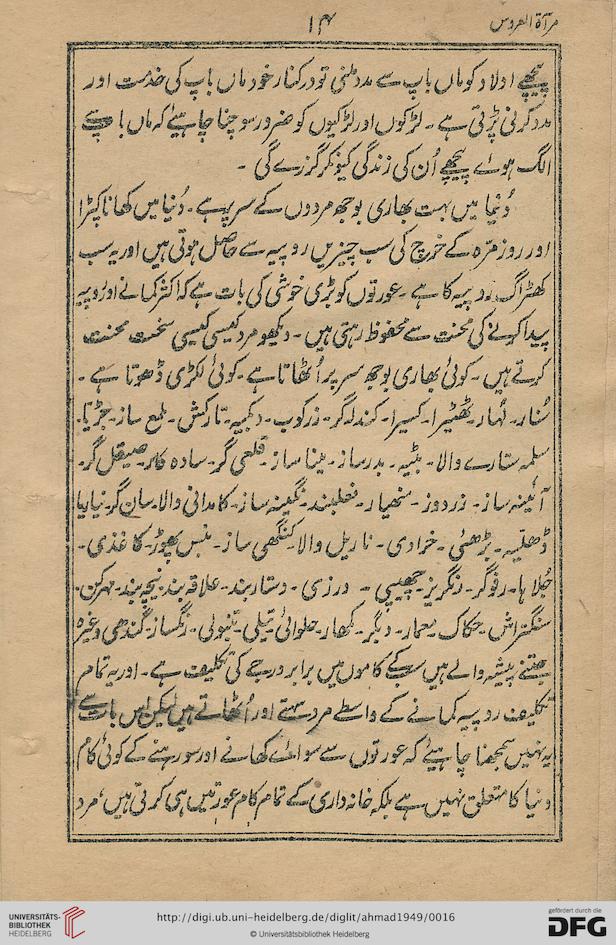 مرآۃ العروس
۱۴
پیچھے اولاد کو ماں باپ سے مدد ملنی تو درکنار خود ماں باپ کی خدمت اور
مدد کرنی پڑتی ہے ۔ لڑکوں اور لڑکیوں کو ضرور سوچنا چاہیئے کہ ماں باپ سے
الگ ہوئے پیچھے اُن کی زندگی کیونکر گزرے گی ۔
دُنیا میں بہت بھاری بوجھ مردوں کے سر پر ہے ۔ دُنیا میں کھانا کپڑا
اور روز مرّہ کے خرچ کی سب چیزیں روپیہ سے حاصل ہوتی ہیں اور یہ سب
کھڑاگ روپیہ کا ہے ۔ عورتوں کو بڑی خوشی کی بات ہے کہ اکثر کمانے اور روپیہ
پیدا کرنے کی محنت سے محفوظ رہتی ہیں ۔ دیکھو مرد کیسی کیسی سخت محنت
کرتے ہیں ۔ کوئی بھاری بوجھ سر پر اُٹھاتا ہے ۔ کوئی لکڑی ڈھوتا ہے ۔
سُنار ۔ لُہار ۔ ٹھٹیرا ۔ کسیرا ۔ کندلہ گر ۔ زرکوب ۔ دبکیہ ۔ تارکش ۔ ملمع ساز ۔ جڑیا ۔
سلمہ ستارے والا ۔ بٹیہ ۔ بدر ساز ۔ مینا ساز ۔ قلعی گر ۔ سادہ کار ۔ صیقل گر ۔
آئینہ ساز ۔ زردوز ۔ منھیار ۔ نعلبند ۔ نگینہ ساز ۔ کامدانی والا ۔ سان گر ۔ نیاریا
ڈھلیہ ۔ بڑھئی ۔ خرادی ۔ ناریل والا ۔ کنگھی ساز ۔ بنس پھوڑ ۔ کاغذی ۔
جُلاہا ۔ رفوگر ۔ رنگریز ۔ چھیپی ۔ درزی ۔ دستار بند ۔ علاقہ بند ۔ نیچہ بند ۔ مہرکن ۔
سنگتراش ۔ حکاک ۔ معمار ۔ دبگر ۔ کمھار ۔ حلوائی ۔ تیلی ۔ تنبولی ۔ رنگساز ۔ گندھی وغیرہ
جتنے پیشہ والے ہیں سب کے کاموں میں برابر درجے کی تکلیف ہے ۔ اور یہ تمام
تکلیف روپیہ کمانے کے واسطے مرد سہتے اور اُٹھاتے ہیں لیکن اس بات سے
یہ نہیں سمجھنا چاہیئے کہ عورتوں سے سوائے کھانے اور سو رہنے کے کوئی کام
دنیا کا متعلق نہیں ہے بلکہ خانہ داری کے تمام کام عورتیں ہی کرتی ہیں ، مرد
UNIVERSITÄTS-
BIBLIOTHEK
HEIDELBERG
http://digi.ub.uni-heidelberg.de/diglit/ahmad1949/0016
© Universitätsbibliothek Heidelberg
gefördert durch die
DFG